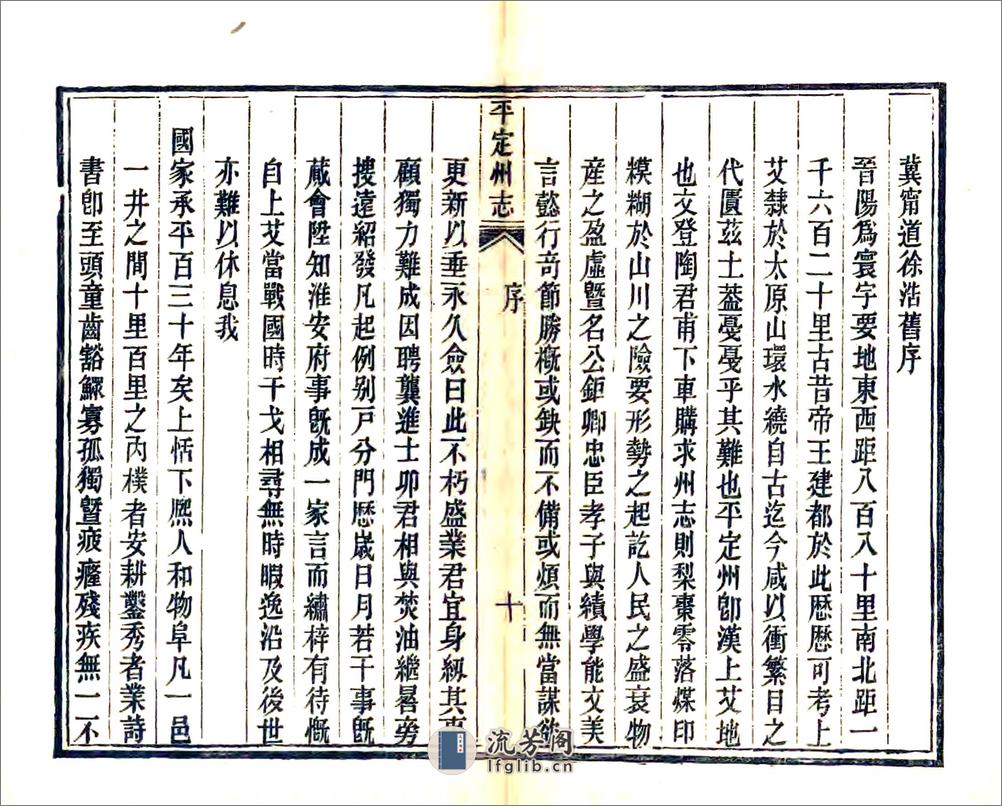 冀甯道徐浩舊序
晉陽爲寰宇要地東西距八百八十里南北距一
千六百二十里古昔帝王建都於此歷歷可考上
艾隸於太原山環水繞自古迄今咸以衝繁目之
代匱茲土葢戞戞乎其難也平定州卽漢上艾地
也文登陶君甫下車購求州志則梨棗零落煤印
糢糊於山川之險要形勢之起訖人民之盛衰物
産之盈虛曁名公鉅卿忠臣孝子與績學能文美
言懿行奇節勝槪或缺而不備或煩而無當謀欲
平定州志
序
十
更新以垂永久僉曰此不朽盛業君宜身級其事
顧獨力難成因聘龔進士卯君相與焚油繼晷旁
搜遠紹發凡起例別戸分門歷歲日月若干事旣
蕆會陞知淮安府事旣成一家言而繡梓有待慨
自上艾當戰國時干戈相尋無時暇逸沿及後世
亦難以休息我
國家承平百三十年矣上恬下熙人和物阜凡一邑
一井之間十里百里之內樸者安耕鑿秀者業詩
書卽至頭童齒豁鰥寡孤獨曁疲癃殘疾無一不
流芳閣
lfglib.cn